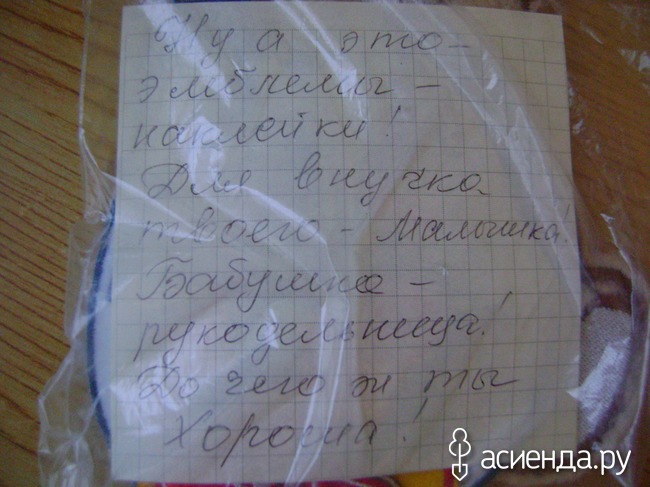 Ну а это-
эмблемы -
наклейки!
Для внучка
твоего - Малышка!
Бабушка -
рукодельница!
До чего ж ты
Хороша!
асиенда.ру